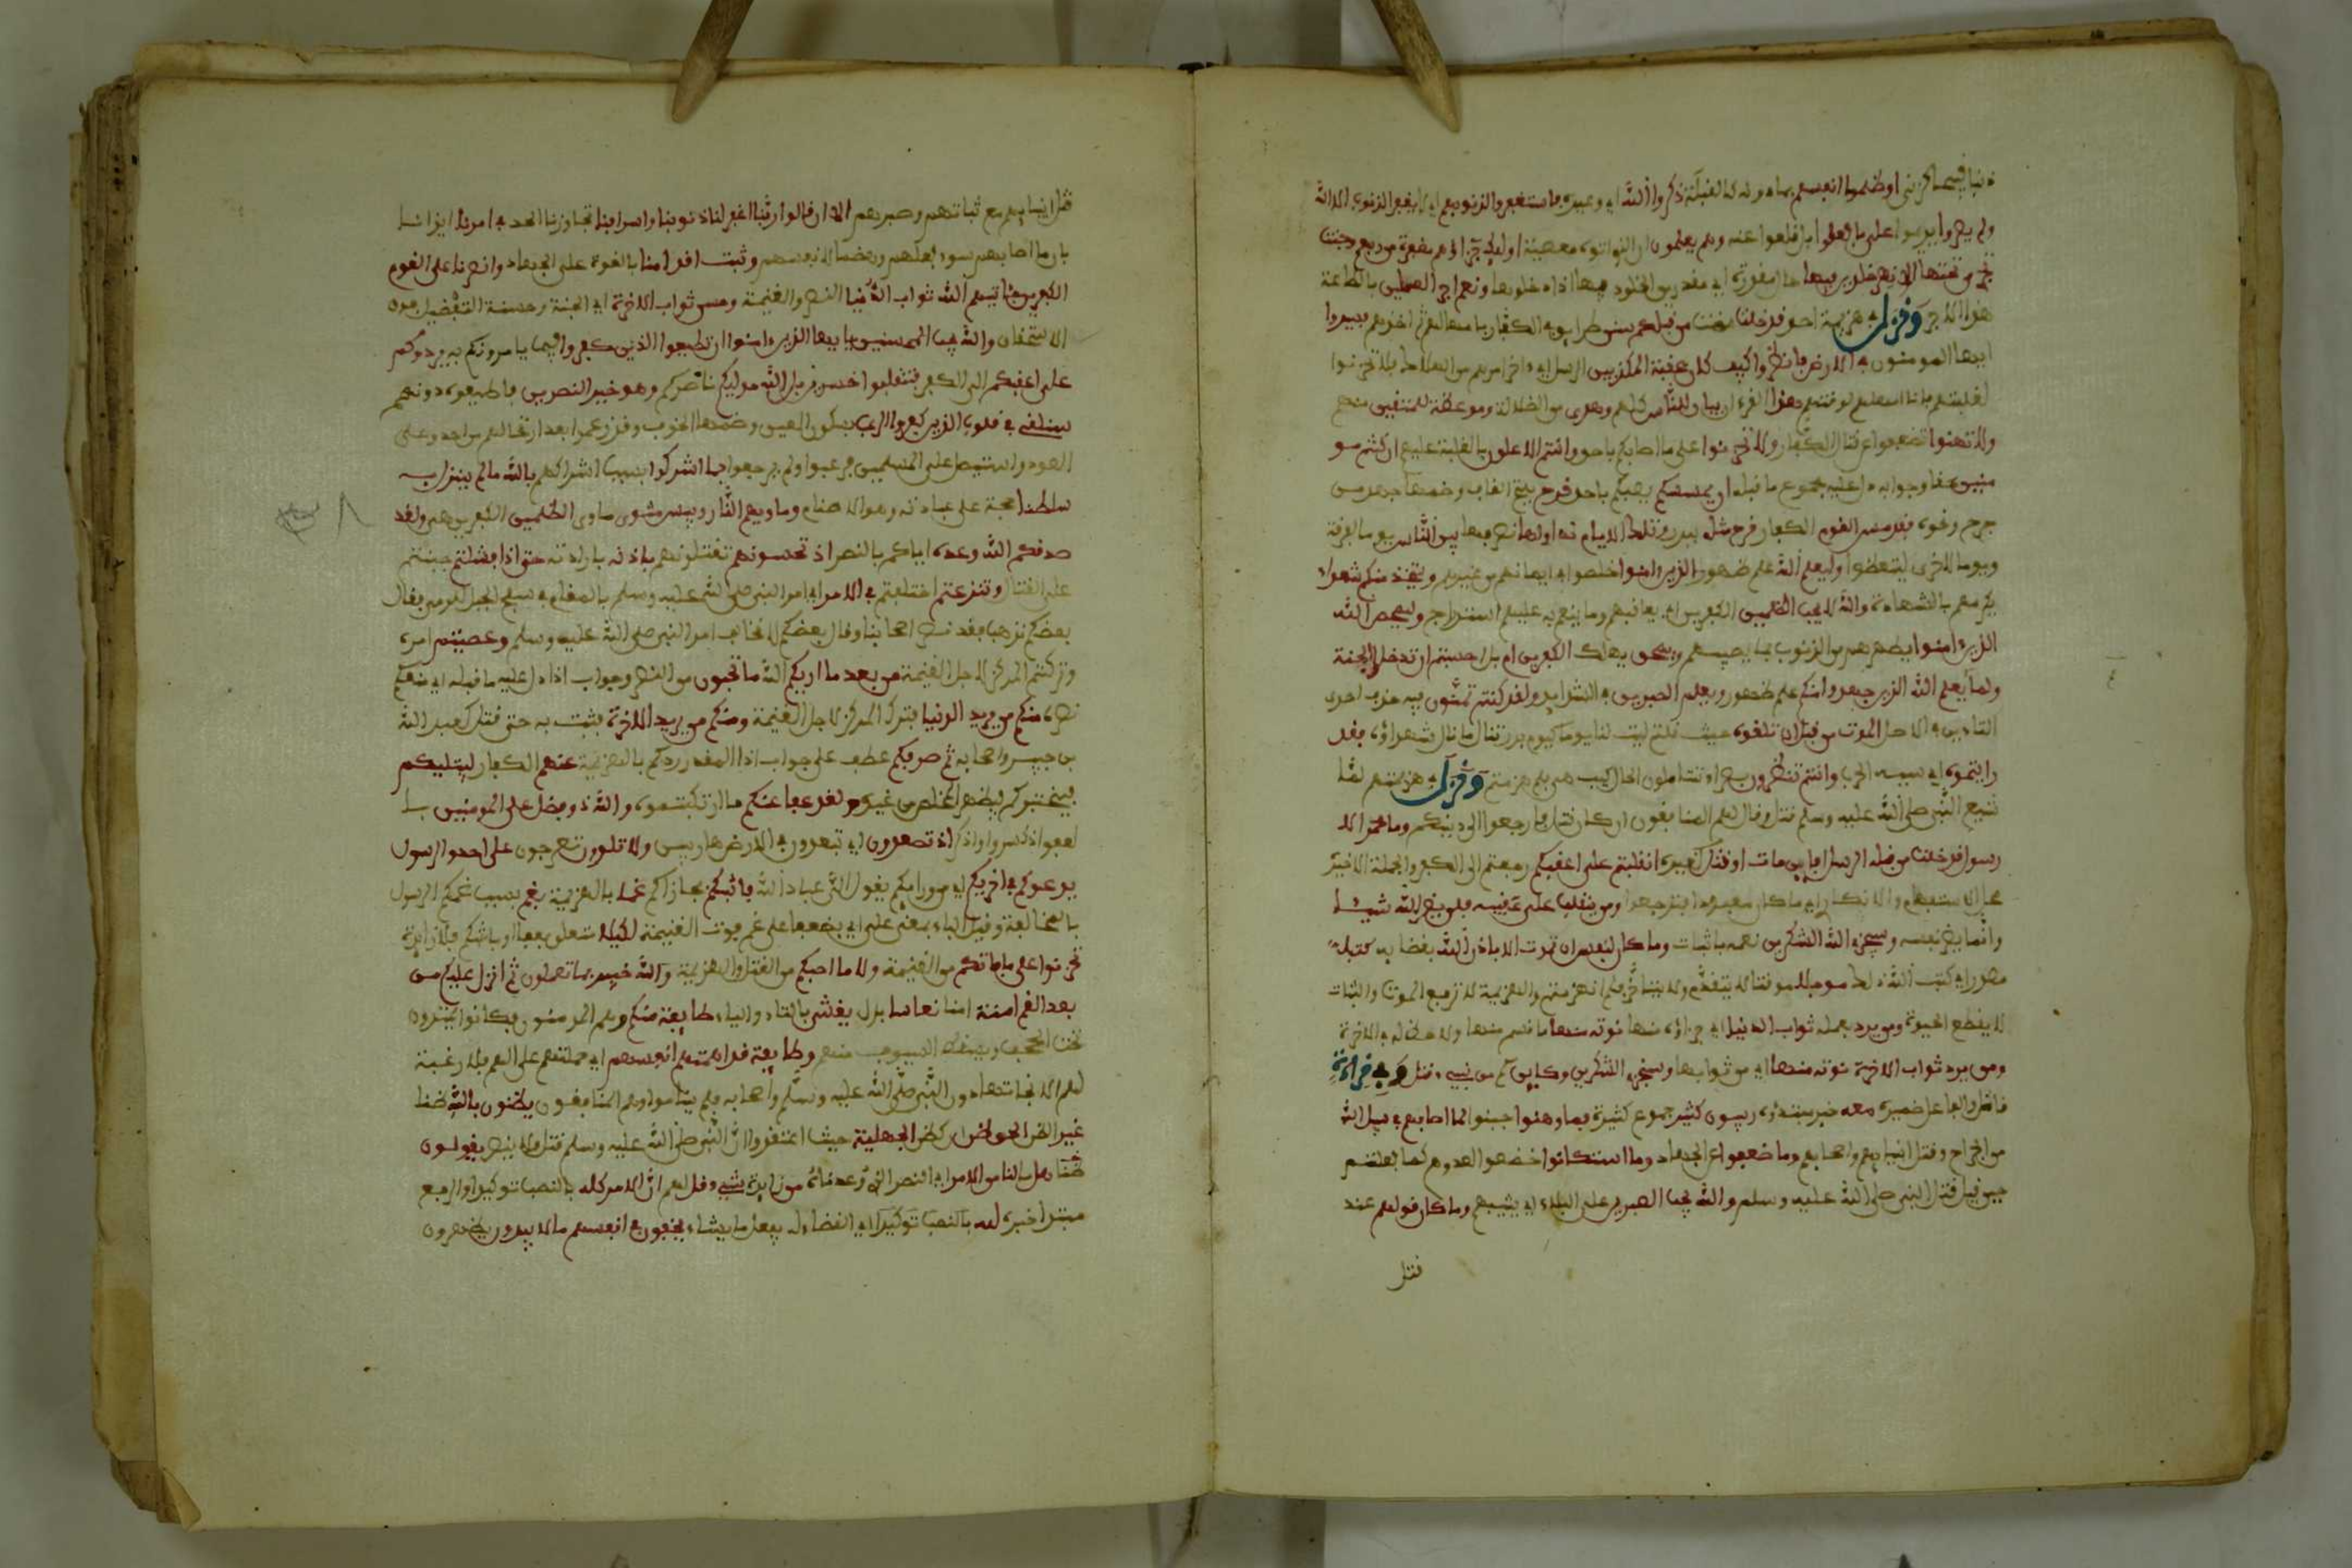 ذنبا قبيحا كالزنى او ظلموا انفسهم بما دونه كالقبلة ذكروا الله اي وعيده فاستغفروا لذنوبهم ومن اي لا يغفر الذنوب الا الله
ولم يصروا يديموا على ما فعلوا بل اقلعوا عنه وهم يعلمون ان الذي اتوه معصية اوليك جزاؤهم مغفرة من ربهم وجنت
تجري من تحتها الانهر خلدين فيها حال مقدرة اي مقدرين الخلود فيها اذا دخلوها ونعم اجر العملين بالطاعة
هذا الاجر ونزل في هزيمة احد قد خلت مضت من قبلكم سنن طرايق في الكفار بامهالهم ثم اخذهم فسيروا
ايها المومنون في الارض فانظروا كيف كان عقبة المكذبين الرسل اي اخر امرهم من الهلاك فلا تحزنوا
لغلبتهم فانا امهلهم لوقتهم هذا القرءان بيان للناس كلهم وهدى من الضلالة وموعظة للمتقين منهم
ولا تهنوا تضعفوا عن قتال الكفار ولا تحزنوا على ما اصابكم باحد وانتم الاعلون بالغلبة عليهم ان كنتم مو
منين حقا وجوابه دل عليه مجموع ما قبله ان يمسسكم يصبكم باحد قرح بفتح القاف وضمها جهد من
جرح ونحوه فقد مس القوم الكفار قرح مثله ببدر وتلك الايام نداولها نصرفها بين الناس يوما لفرقة
ويوما لاخرى ليتعظوا وليعلم الله علم ظهور الذين ءامنوا اخلصوا في ايمانهم من غيرهم ويتخذ منكم شهداء
يكرمهم بالشهادة والله لا يحب الظلمين الكفرين اي يعاقبهم وما ينعم به عليهم استدراج وليمحص الله
الذين ءامنوا يطهرهم من الذنوب بما يصيبهم ويمحق يهلك الكفرين ام بل احسبتم ان تدخلوا الجنة
ولما يعلم الله الذين جهدوا منكم علم ظهور ويعلم الصبرين في الشدايد ولقد كنتم تمنون فيه حذف احدى
التاءين في الاصل الموت من قبل ان تلقوه حيث قلتم ليت لنا يوما كيوم بدر لننال ما نال شهداؤه فقد
رايتموه اي سببه الحرب وانتم تنظرون بصراء تتاملون الحال كيف هي فلم هزمتم ونزل في هزيمتهم لما
شيع النبي صلى الله عليه وسلم قتل وقال لهم المنافقون ان كان قتل فارجعوا الى دينكم وما محمد الا
رسول قد خلت من قبله الرسل افاين مات او قتل كغيره انقلبتم على اعقبكم رجعتم الى الكفر والجملة الاخيرة
محل الاستفهام الانكاري اي ما كان معبودا فترجعوا ومن ينقلب على عقبيه فلن يضر الله شيئا
وانما يضر نفسه وسيجزي الله الشكرين نعمه بالثبات وما كان لنفس ان تموت الا باذن الله بقضايه كتبا
مصدر اي كتب الله ذلك موجلا موقتا لا يتقدم ولا يتاخر فلم انهزمتم والهزيمة لا تدفع الموت والثبات
لا يقطع الحيوة ومن يرد بعمله ثواب الدنيا اي جزاؤه منها نوته منها ما قسم منها ولا حظ له في الاخرة
ومن يرد ثواب الاخرة نوته منها اي من ثوابها وسنجزي الشكرين وكاين كم من نبيء قتل وفي قراءة
قاتل والفاعل ضميره معه خبر مبتدؤه ربيون كثير جموع كثيرة فما وهنوا جبنوا لما اصابهم في سبيل الله
من الجراح وقتل انبيايهم واصحابهم وما ضعفوا عن الجهاد وما استكانوا خضعوا لعدوهم كما فعلتم
حين قيل قتل النبي صلى الله عليه وسلم والله يحب الصبرين على البلاء اي يثيبهم وما كان قولهم عند
قتل
قتل انبيايهم مع ثباتهم وصبرهم الا ان قالوا ربنا اغفر لنا ذنوبنا واسرافنا تجاوزنا الحد في امرنا ايذانا
بان ما اصابهم لسوء فعلهم وهضما لانفسهم وثبت اقدامنا بالقوة على الجهاد وانصرنا على القوم
الكفرين فاتيهم الله ثواب الدنيا النصر والغنيمة وحسن ثواب الاخرة اي الجنة وحسنه التفضل فوق
الاستحقاق والله يحب المحسنين يايها الذين ءامنوا ان تطيعوا الذين كفروا فيما يامرونكم به يردوكم
على اعقبكم الى الكفر فتنقلبوا خسرين بل الله موليكم ناصركم وهو خير النصرين فاطيعوه دونهم
سنلقي في قلوب الذين كفروا الرعب بسكون العين وضمها الخوف وقد عزموا بعد ارتحالهم من احد على
العود واستيصال المسلمين فرعبوا ولم يرجعوا بما اشركوا بسبب اشراكهم بالله ما لم ينزل به
سلطنا حجة على عبادته وهو الاصنام وماويهم النار وبيس مثوى ماوى الظلمين الكفرين هي ولقد
صدقكم الله وعده اياكم بالنصر اذ تحسونهم تقتلونهم باذنه بارادته حتى اذا فشلتم جبنتم
على القتال وتنزعتم اختلفتم في الامر اي امر النبي صلى الله عليه وسلم بالمقام في سفح الجبل للرمي فقال
بعضكم نذهب فقد نصر اصحابنا وقال بعضكم لا نخالف امر النبي صلى الله عليه وسلم وعصيتم امره
وتركتم المركز لاجل الغنيمة من بعد ما اريكم الله ما تحبون من النصر وجواب اذا دل عليه ما قبله اي منعكم
نصره منكم من يريد الدنيا فترك المركز لاجل الغنيمة ومنكم من يريد الاخرة فثبت به حتى قتل كعبد الله
بن جبير واصحابه ثم صرفكم عطف على جواب اذا المقدر ردكم بالهزيمة عنهم الكفار ليبتليكم
ليختبركم ليظهر المخلص من غيره ولقد عفا عنكم ما ارتكبتموه والله ذو فضل على المومنين با
لعفو اذكروا اذ تصعدون اي تبعدون في الارض هاربين ولا تلوون تعرجون على احد والرسول
يدعوكم في اخريكم اي من ورايكم يقول الي عباد الله فاثبكم فجازاكم غما بالهزيمة بغم بسبب غمكم الرسول
بالمخالفة وقيل الباء بمعنى على اي مضاعفا على غم فوت الغنيمة لكيلا متعلق بعفا او باثبكم فلا زايدة
تحزنوا على ما فاتكم من الغنيمة ولا ما اصبكم من القتل والهزيمة والله خبير بما تعملون ثم انزل عليكم من
بعد الغم امنة امنا نعاسا بدل يغشى بالتاء والياء طايفة منكم وهم المومنون فكانوا يميدون
تحت الحجف وتسقط السيوف منهم وطايفة قد اهمتهم انفسهم اي حملتهم على الهم فلا رغبة
لهم الا نجاتها دون النبي صلى الله عليه وسلم واصحابه فلم يناموا وهم المنافقون يظنون بالله ظنا
غير الظن الحق ظن اي كظن الجهلية حيث اعتقدوا ان النبي صلى الله عليه وسلم قتل او لا ينصر يقولون
هل ما لنا من الامر اي النصر الذي وعدناه من زايدة شيء قل لهم ان الامر كله بالنصب توكيدا والرفع
مبتدا خبره لله بالنصب توكيدا اي القضاء له يفعل ما يشاء يخفون في انفسهم ما لا يبدون يظهرون